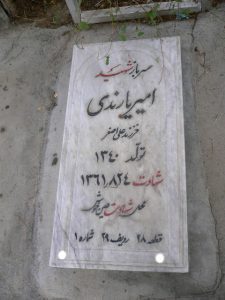 سرباز شهید
امیر یارندی
فرزند علی اصغر
تولد ۱۳۴۰
شهادت ۱۳۶۱٫۸٫۲۴
محل شهادت عین خوش
قطعه ۲۸ ردیف ۲۹ شماره ۱